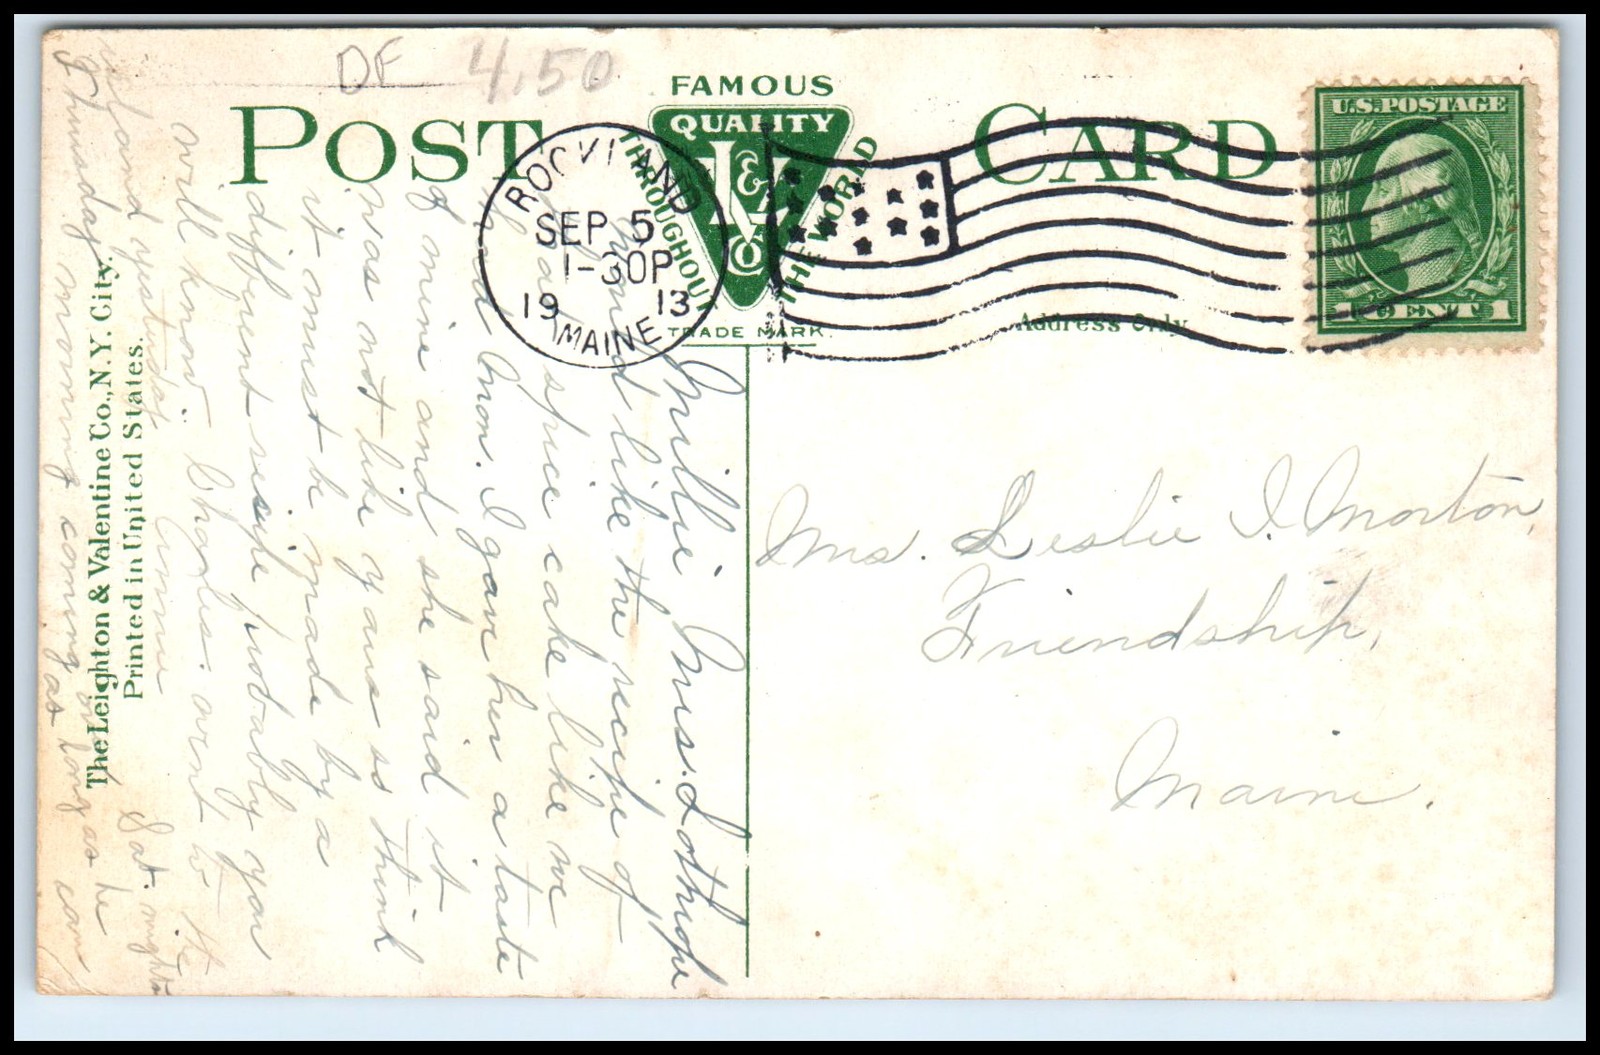 DE 4.50
POST CARD
FAMOUS
QUALITY
V & Co
THROUGHOUT THE WORLD
TRADE MARK
ROCKLAND
SEP 5
1-30P
1913
MAINE
U.S. POSTAGE
1 CENT 1
Address Only
Mrs. Leslie I. Morton,
Friendship,
Maine.
Millie Miss. Lothrope
would like the recipe of
that spice cake like we
had Mon. I gave her a taste
of mine and she said it
was not like yours so think
it must be made by a
different recipe probably you
will know. Charles. went to the
island yesterday
Thursday morning coming as long as he can
Sat. night
The Leighton & Valentine Co., N.Y. City.
Printed in United States.